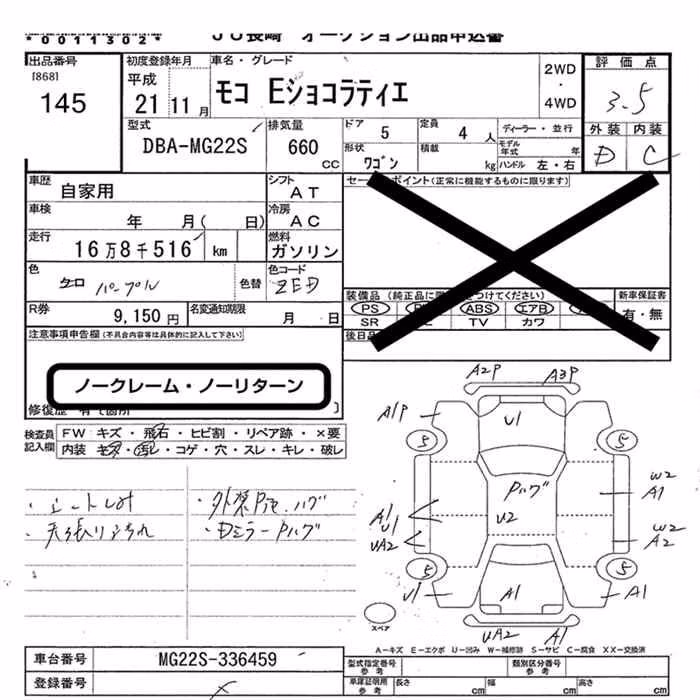 *0011302*
JU長崎 オークション出品申込書
出品番号
[868]
145
初度登録年月
平成
21 11月
車名・グレード
モコ Eショコラティエ
2WD
・
4WD
評価点
3.5
外装 内装
D C
型式
DBA-MG22S
排気量
660
CC
ドア 5
定員 4 人
ディーラー・並行
形状 ワゴン
積載 kg
モデル年式 年
ハンドル 左・右
車歴 自家用
シフト AT
車検 年 月( 日)
冷房 AC
走行 16万8千516 km
燃料 ガソリン
色 クロ パープル
色替
色コード ZED
R券 9,150円
名変通知期限 月 日
セールスポイント(正常に機能するものに限ります)
装備品(純正品に○をつけてください)
PS ABS エアB
SR TV カワ
新車保証書
有・無
後日品
注意事項申告欄(不具合内容等は具体的に記入して下さい)
ノークレーム・ノーリターン
修復歴 有で箇所
検査員記入欄
FW キズ・飛石・ヒビ割・リペア跡・×要
内装 キズ・汚レ・コゲ・穴・スレ・キレ・破レ
・シートしみ
・天張りよごれ
・外装P色ハゲ
・DミラーPハゲ
A2P A3P
A1P U1
5 5
Pハゲ
U2
A1
U1
UA2
W2
A1
W2
A2
5 5
U1 A1 A1
UA2 A1
スペア
A−キズ E−エクボ U−凹み W−補修跡 S−サビ C−腐食 XX−交換済
車台番号 MG22S-336459
登録番号
型式指定番号 参考
類別区分番号 参考
車庫証明用 参考
長さ cm
幅 cm
高さ cm